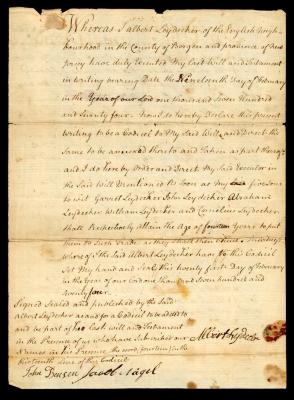 Whereas I albert Leydecker of the English neigh-
bourhood in the County of Bergen and province of new
Jersey have duly Executed My Last Will and Testament
in Writing bearing Date the Nineteenth Day of February
in the Year of our Lord one thousand Seven Hundred
and Seventy four. Now I do hereby Declare this present
writing to be a Codicil to My Said Will and Direct the
Same to be annexed thereto and Taken as part thereof
and I do hereby order and Direct My Said Executors in
the Said Will Mentioned as Soon as My
to wit Garret Leydecker John Leydecker Abraham
Leydecker William Leydecker and Cornelius Leydecker
Shall Respectively attain the Age of fourteen Years to put
them to Such Trade as they Shall then
whereof I the Said Albert Leydecker have to this Codicil
Set My hand and Seal this twenty first Day of February
in the Year of our Lord one thousand Seven hundred and
Seventy four.
Signed Sealed and published by the Said
Albert Leydecker as and for a Codicil to be added to
and be part of his Last will and Testament
in the Presence of us who have Subscribed our
Names in his Presence the word fourteen in the
thirteenth Line of this Codicil
Albert Lydecker
John Benson Jacob Nagel